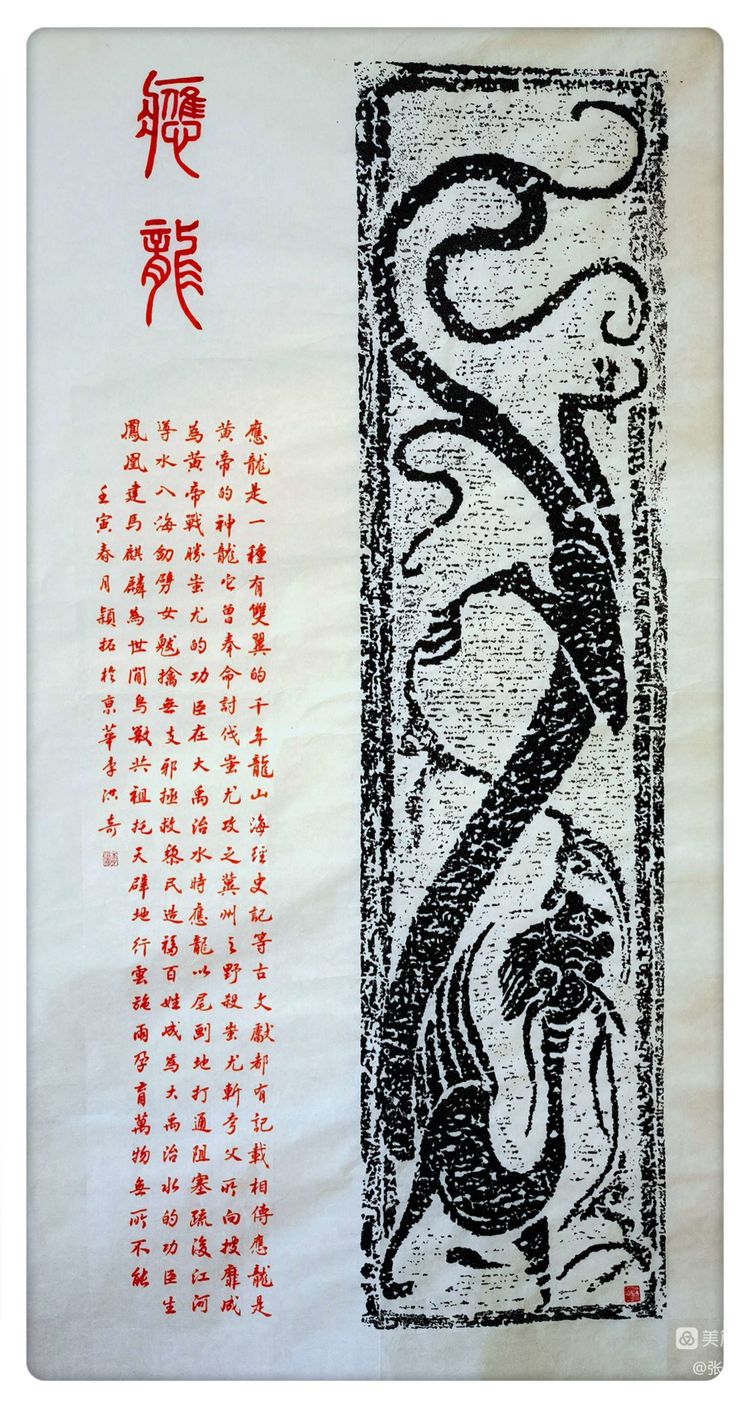 應龍
應龍是一種有雙翼的千年龍山海經史記等古文獻都有記載相傳應龍是
黃帝的神龍它曾奉命討伐蚩尤攻之冀州之野殺蚩尤斬夸父所向披靡成
為黃帝戰勝蚩尤的功臣在大禹治水時應龍以尾劃地打通阻塞疏浚江河
導水入海劍劈女魃擒無支邪拯救黎民造福百姓成為大禹治水的功臣生
鳳凰建馬麒麟為世間鳥獸共祖托天辟地行雲施雨孕育萬物無所不能
壬寅春月穎拓於京華李洪奇
美
@张